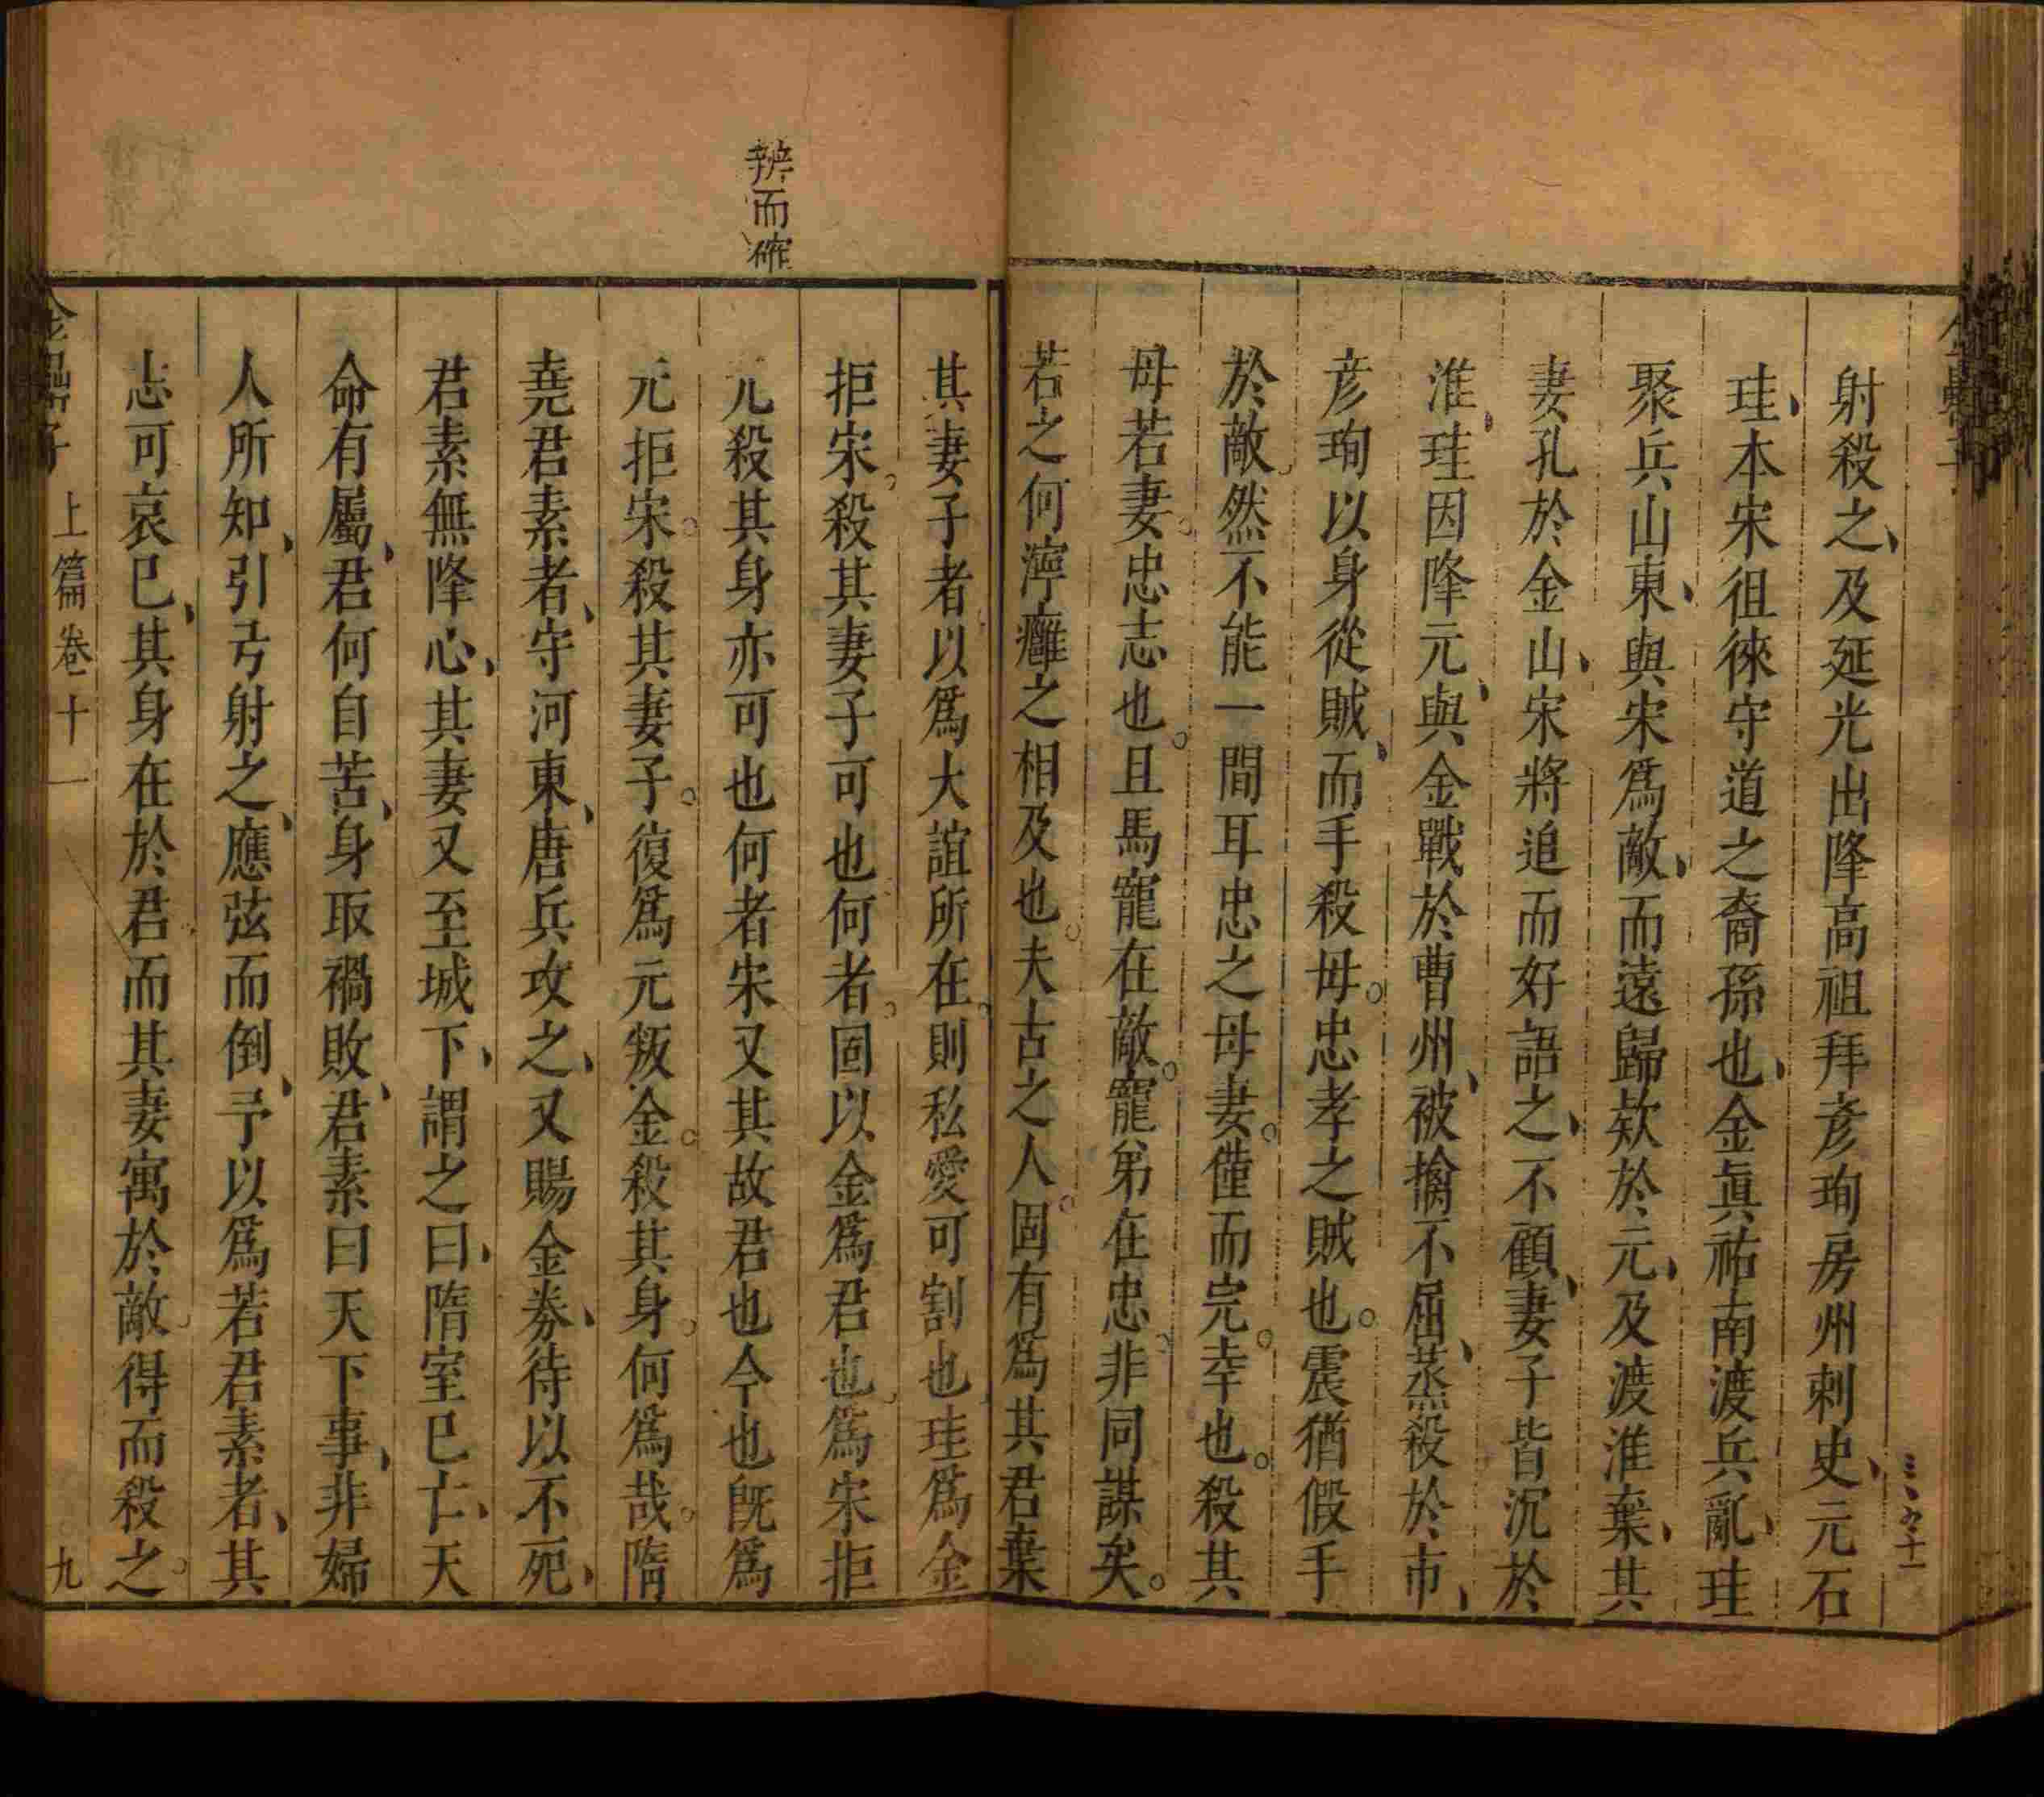 射殺之、及延光出降高祖拜彥珣房州刺史、元石
珪、本宋徂徠守道之裔孫也、金眞祐南渡兵亂、珪
聚兵山東、與宋爲敵、而遠歸欵於元、及渡淮棄、其
妻孔於金山、宋將追而好語之、不顧、妻子皆沉於
淮、珪因降元、與金戰於曹州、被擒不屈、蒸殺於市、
彥珣以身從賊、而手殺母。忠孝之賊也。震猶假手
於敵。然不能一間耳忠之母妻。僅而完。幸也。殺其
母若妻。忠志也。且馬寵在敵。寵弟在忠。非同謀矣。
若之何濘癰之相及也。夫古之人。固有爲其君棄
其妻子者以爲大誼所在。則私愛可割也珪爲金
拒宋。殺其妻子可也何者。固以金爲君也。爲宋拒
元殺其身亦可也何者宋又其故君也今也旣爲
元拒宋。殺其妻子。復爲元叛金。殺其身。何爲哉。隋
堯君素者、守河東、唐兵攻之、又賜金券、待以不死、
君素無降心、其妻又至城下、謂之曰、隋室巳亡、天
命有屬、君何自苦、身取禍敗、君素曰天下事、非婦
人所知、引弓射之、應弦而倒、予以爲若君素者、其
志可哀巳、其身在於君而其妻寓於敵。得而殺之。
辨而確
上篇卷十一
九